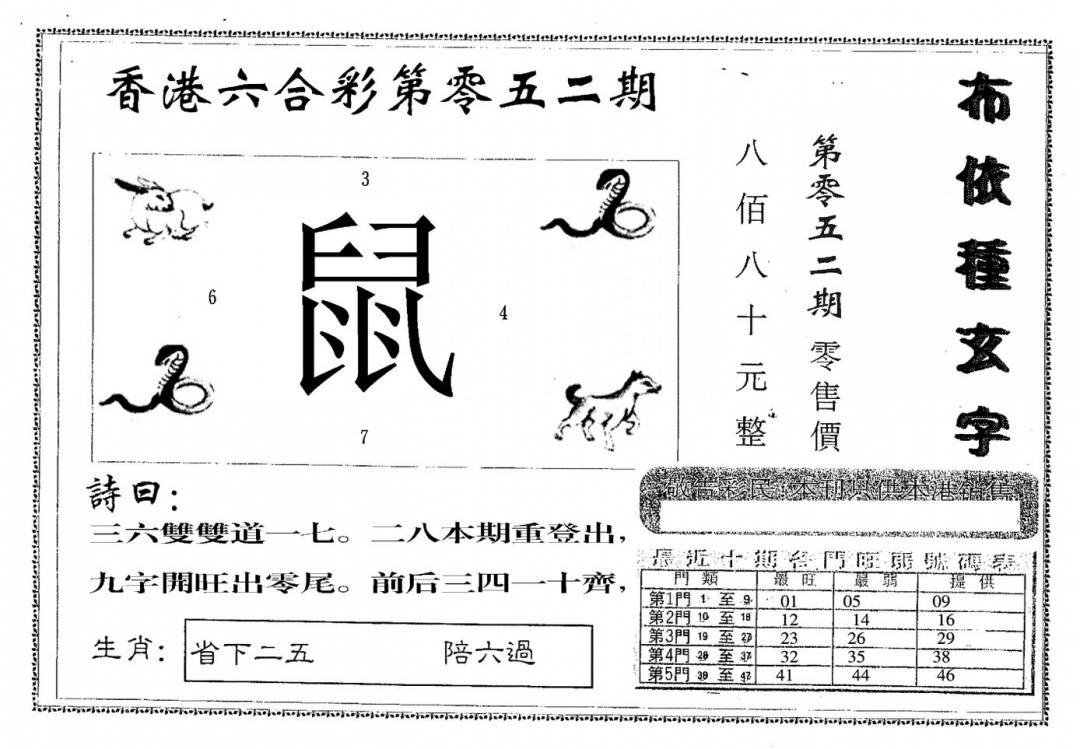 香港六合彩第零五二期
布依種玄字
第零五二期零售價
八佰八十元整
3
鼠
6
4
7
詩曰：
三六雙雙道一七。二八本期重登出，
九字開旺出零尾。前后三四一十齊，
生肖：省下二五 陪六過
敬告彩民：本刊只供本港銷售
最近十期各門旺弱號碼表
門類 最旺 最弱 提供
第1門 1 至 9 01 05 09
第2門 10 至 18 12 14 16
第3門 19 至 27 23 26 29
第4門 28 至 37 32 35 38
第5門 38 至 47 41 44 46